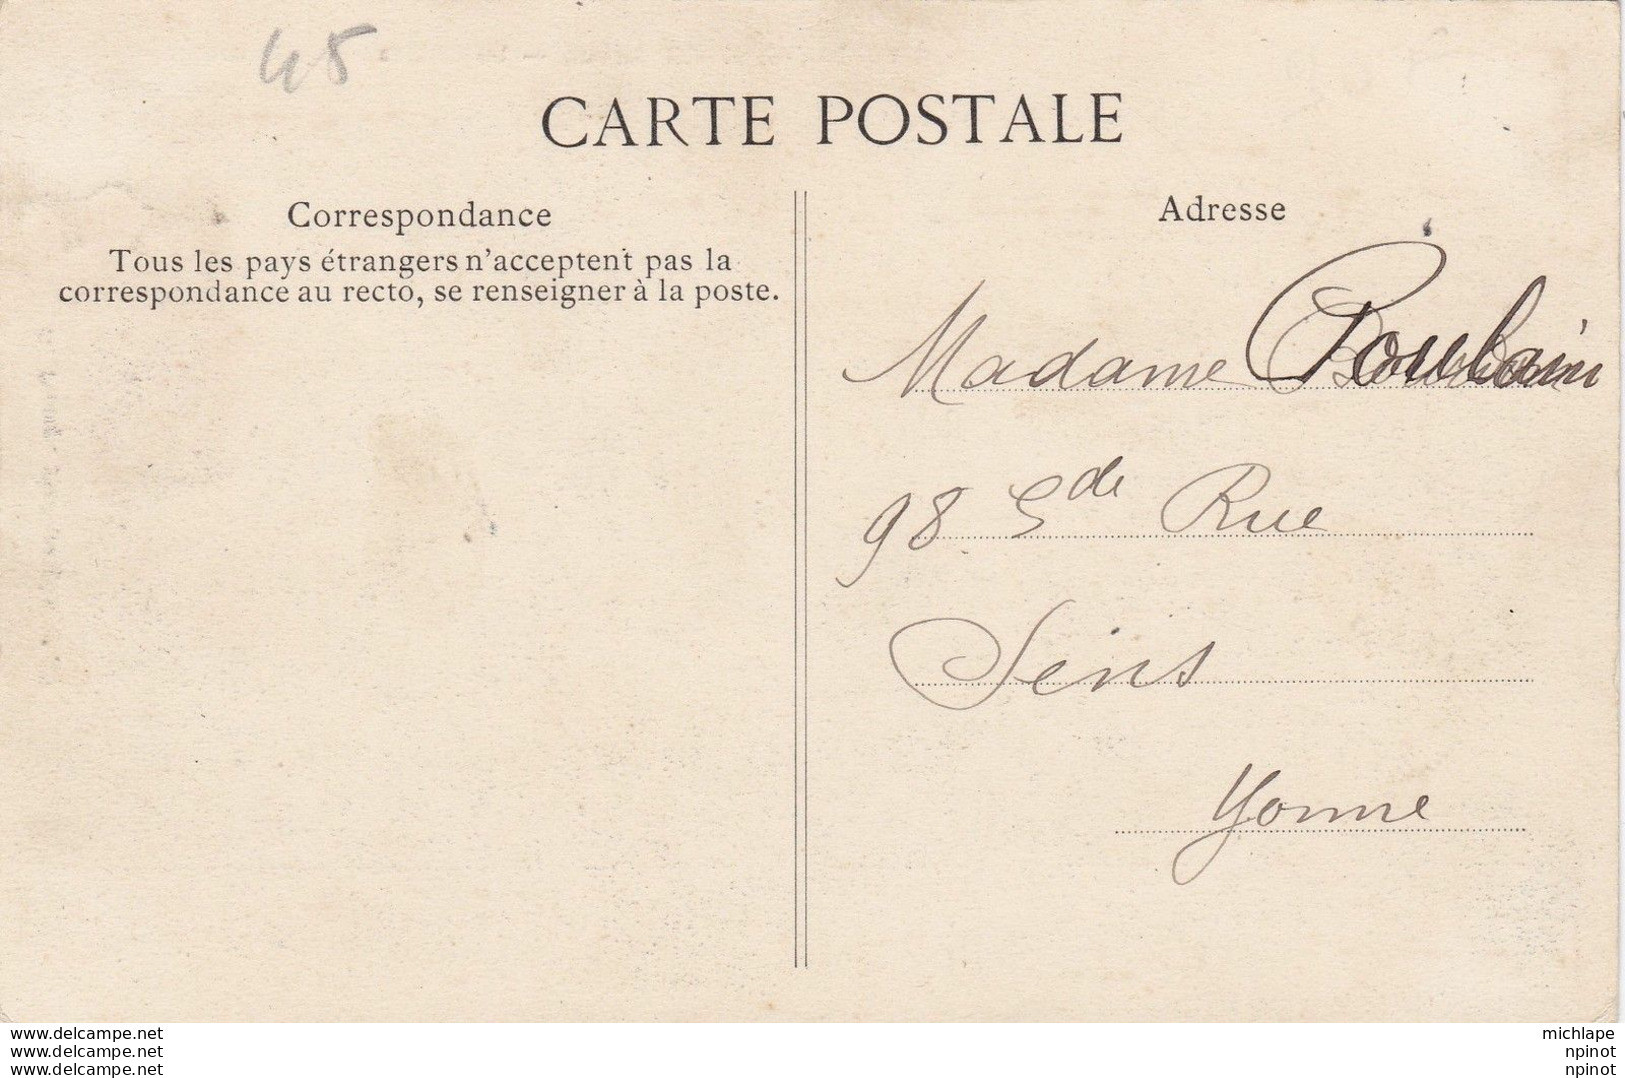 45
CARTE POSTALE
Correspondance
Tous les pays étrangers n'acceptent pas la
correspondance au recto, se renseigner à la poste.
Adresse
Madame Poulain
98 Gde Rue
Sens
Yonne
www.delcampe.net
www.delcampe.net
www.delcampe.net
michlape
npinot
npinot